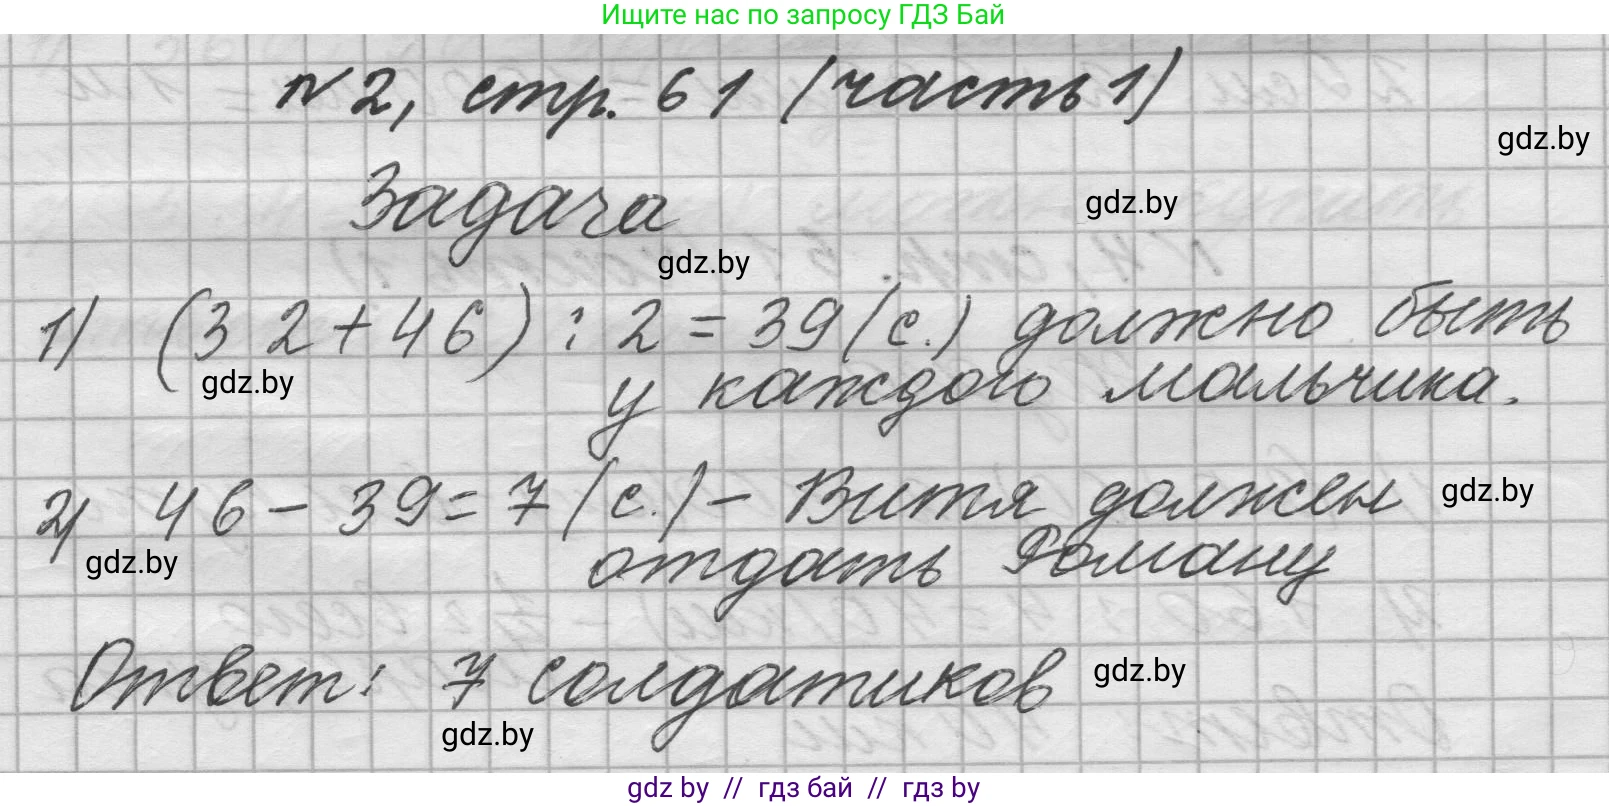 Ищите нас по запросу ГДЗ Бай
№2, стр. 61 (часть 1)
gdz.by
Задача
gdz.by
gdz.by
1) (32+46) : 2 = 39 (с.) должно быть
gdz.by
у каждого мальчика.
2) 46 - 39 = 7 (с.) - Витя должен
gdz.by
gdz.by
отдать Роману
Ответ: 7 солдатиков
gdz.by
gdz.by
gdz by // гдз бай // гдз by